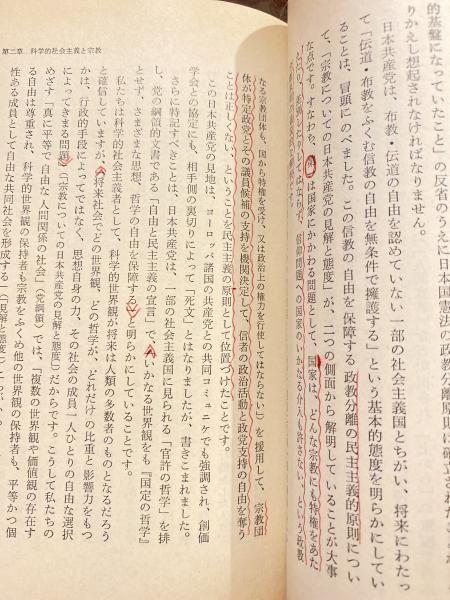 的基盤になっていたこと」の反省のうえに日本国憲法の政教分離原則に確立
りかえし想起されなければなりません。
日本共産党は、布教・伝道の自由を認めていない一部の社会主義国とちがい、将来にわたっ
て「伝道・布教をふくむ信教の自由を無条件で擁護する」という基本的態度を明らかにしてい
ることは、冒頭にのべました。この信教の自由を保障する政教分離の民主主義的原則につい
て、「宗教についての日本共産党の見解と態度」が、二つの側面から解明していることが大事
な点です。すなわち、
は国家にかかわる問題として、国家は、どんな宗教にも特権をあた
ならず、信仰問題への国家のいかなる介入も許さない、という政教
第二章 科学的社会主義と宗教
なる宗教団体も、国から特権を受け、又は政治上の権力を行使してはならない」）を援用して、宗教団
体が特定政党とその議員候補の支持を機関決定して、信者の政治活動と政党支持の自由を奪う
ことは正しくない、ということを民主主義の原則として位置づけたことです。
この日本共産党の見地は、ヨーロッパ諸国の共産党との共同コミュニケでも強調され、創価
学会との協定にも、相手側の裏切りによって「死文」とはなりましたが、書きこまれました。
さらに特記すべきことは、日本共産党は、一部の社会主義国に見られる「官許の哲学」を排
し、党の綱領的文書である「自由と民主主義の宣言」で、いかなる世界観をも『国定の哲学』
とせず、さまざまな思想、哲学の自由を保障する」と明らかにしていることです。
私たちは科学的社会主義者として、科学的世界観が将来は人類の多数者のものとなるだろう
と確信していますが、「将来社会でどの世界観、どの哲学が、どれだけの比重と影響力をもつ
かは、行政的手段によってではなく、思想自身の力、その社会の成員一人ひとりの自由な選択
によってきまる問題」（「宗教についての日本共産党の見解と態度」）だからです。こうして私たちの
めざす「真に平等で自由な人間関係の社会」（党綱領）では、「複数の世界観や価値観の存在す
る自由は尊重され、科学的世界観の保持者も宗教をふくめ他の世界観の保持者も、平等かつ個
性ある成員として自由な共同社会を形成する」（「見解と態度」）